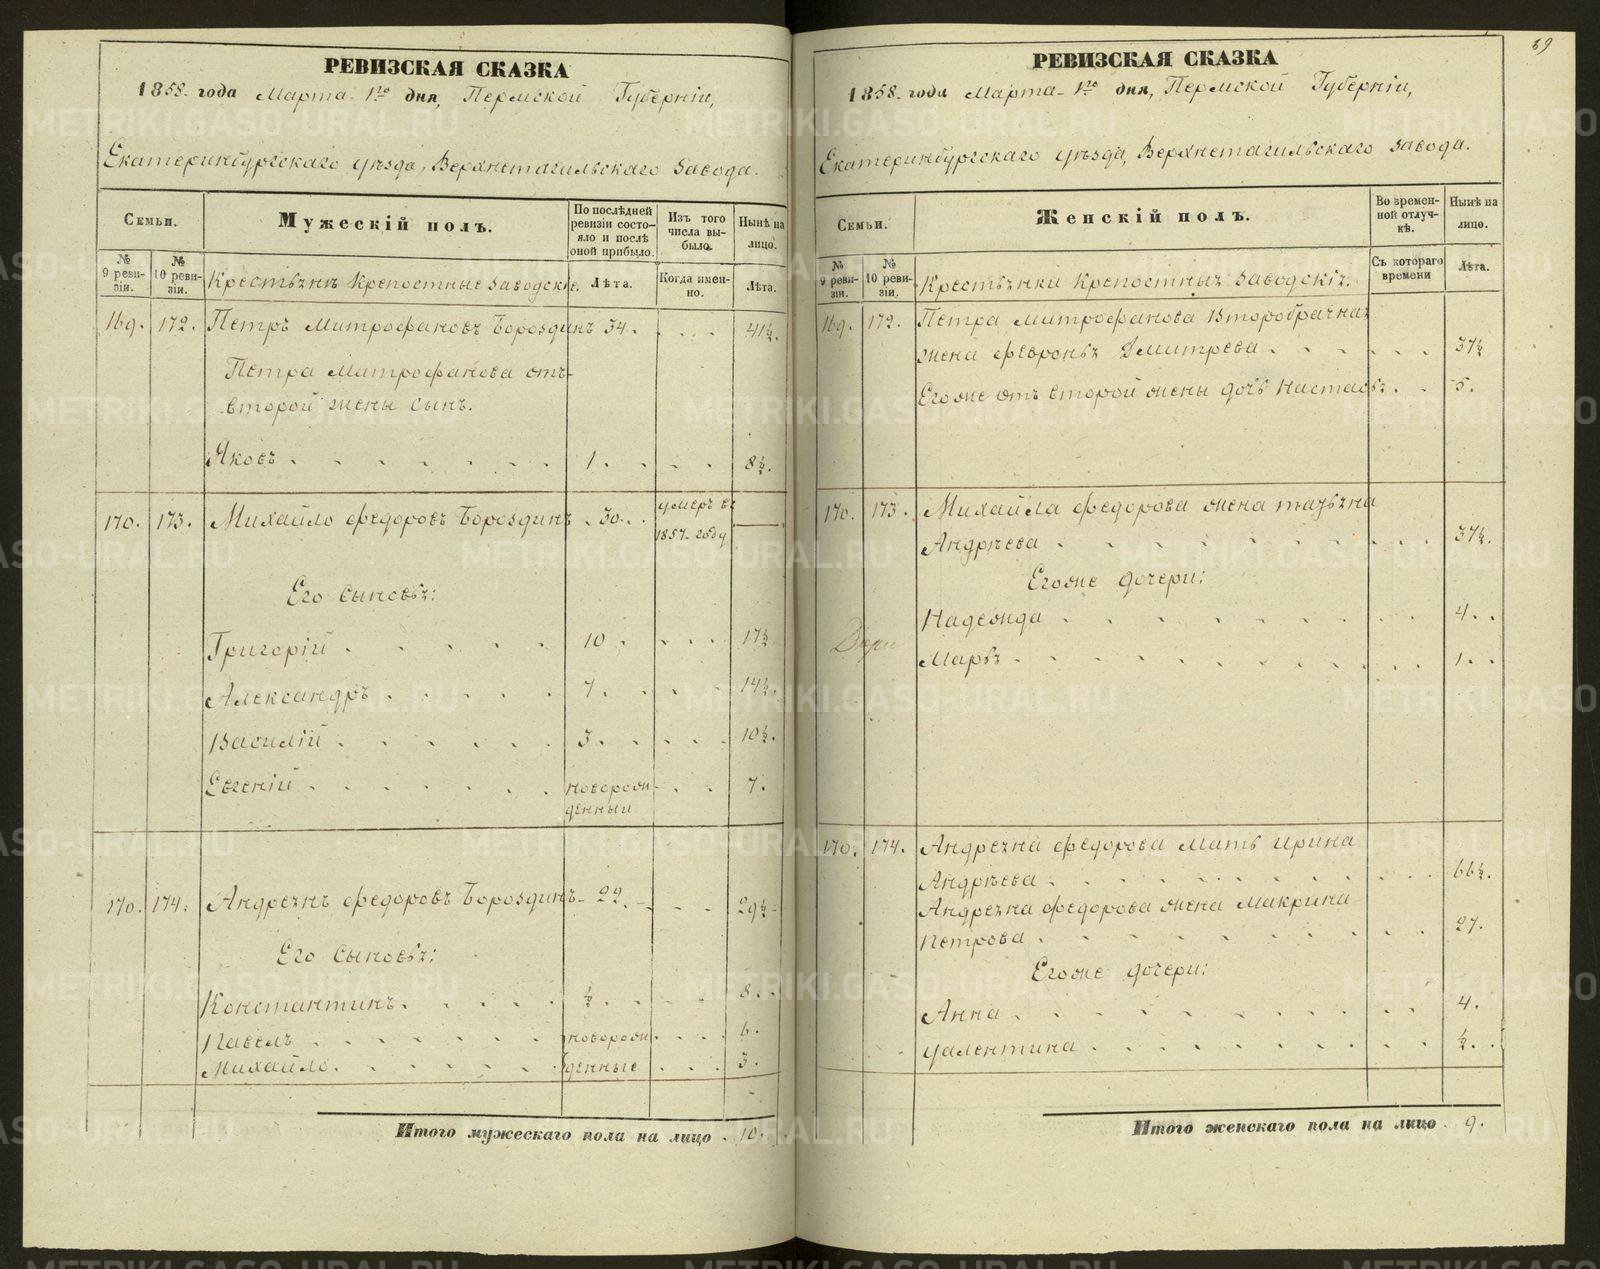 РЕВИЗСКАЯ СКАЗКА
1858. года Марта 1го дня, Пермской Губерніи,
Екатеринбургскаго уѣзда, Верхнетагильскаго Завода.
Семьи.
№ 9 ревизіи.
№ 10 ревизіи.
Мужескій полъ.
По послѣдней ревизіи состояло и послѣ оной прибыло.
Изъ того числа выбыло.
Нынѣ на лицо.
Крестьянъ Крепостные Заводскіе.
Лѣта.
Когда именно.
Лѣта.
169. 172. Петръ Митрофановъ Бороздинъ 34. 41½.
Петра Митрофанова отъ
второй жены сынъ.
Яковъ 1. 8½.
170. 173. Михайло Федоровъ Бороздинъ 30. умеръ въ
1857. году
Его Сыновья:
Григорій 10 17½
Александръ 7. 14½.
Василій 3. 10½.
Евгеній новорож- 7.
денный
170. 174. Андреянъ Федоровъ Бороздинъ 22. 29½
Его Сыновья:
Константинъ. ½ 8.
Павелъ новорож 6.
Михайло. денные 3.
Итого мужескаго пола на лицо 10.
69
РЕВИЗСКАЯ СКАЗКА
1858. года Марта 1го дня, Пермской Губерніи,
Екатеринбургскаго уѣзда, Верхнетагильскаго Завода.
Семьи.
№ 9 ревизіи.
№ 10 ревизіи.
Женскій полъ.
Во временной отлучкѣ.
Нынѣ на лицо.
Крестьянки Крепостныя Заводскія.
Съ котораго времени
Лѣта.
169. 172. Петра Митрофанова второбрачная
жена Февронья Дмитрева 37½
Егоже отъ второй жены дочь Настасья. 5.
170. 173. Михайла Федорова жена
Андрѣева 37½.
Егоже дочери:
Надежда 4.
Марья 1.
170. 174. Андреяна Федорова Мать Ирина
Андрѣева 66½.
Андреяна Федорова жена Макрина
Петрова 27.
Егоже дочери:
Анна 4.
½.
Итого женскаго пола на лицо 9.
METRIKI.GASO-URAL.RU